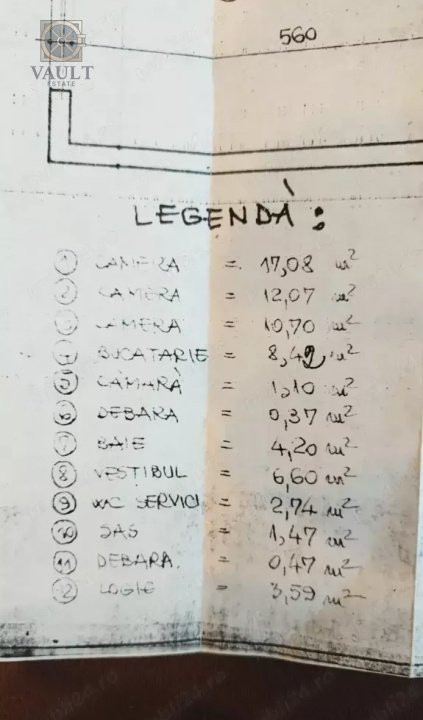 560
VAULT
ESTATE
LEGENDĂ :
1 CAMERA = 17,08 m²
2 CAMERA = 12,07 m²
3 CAMERA = 10,70 m²
4 BUCATARIE = 8,42 m²
5 CĂMARĂ = 1,10 m²
6 DEBARA = 0,37 m²
7 BAIE = 4,20 m²
8 VESTIBUL = 6,60 m²
9 WC SERVICI = 2,74 m²
10 SAS = 1,47 m²
11 DEBARA. = 0,47 m²
12 LOGIE = 3,59 m²